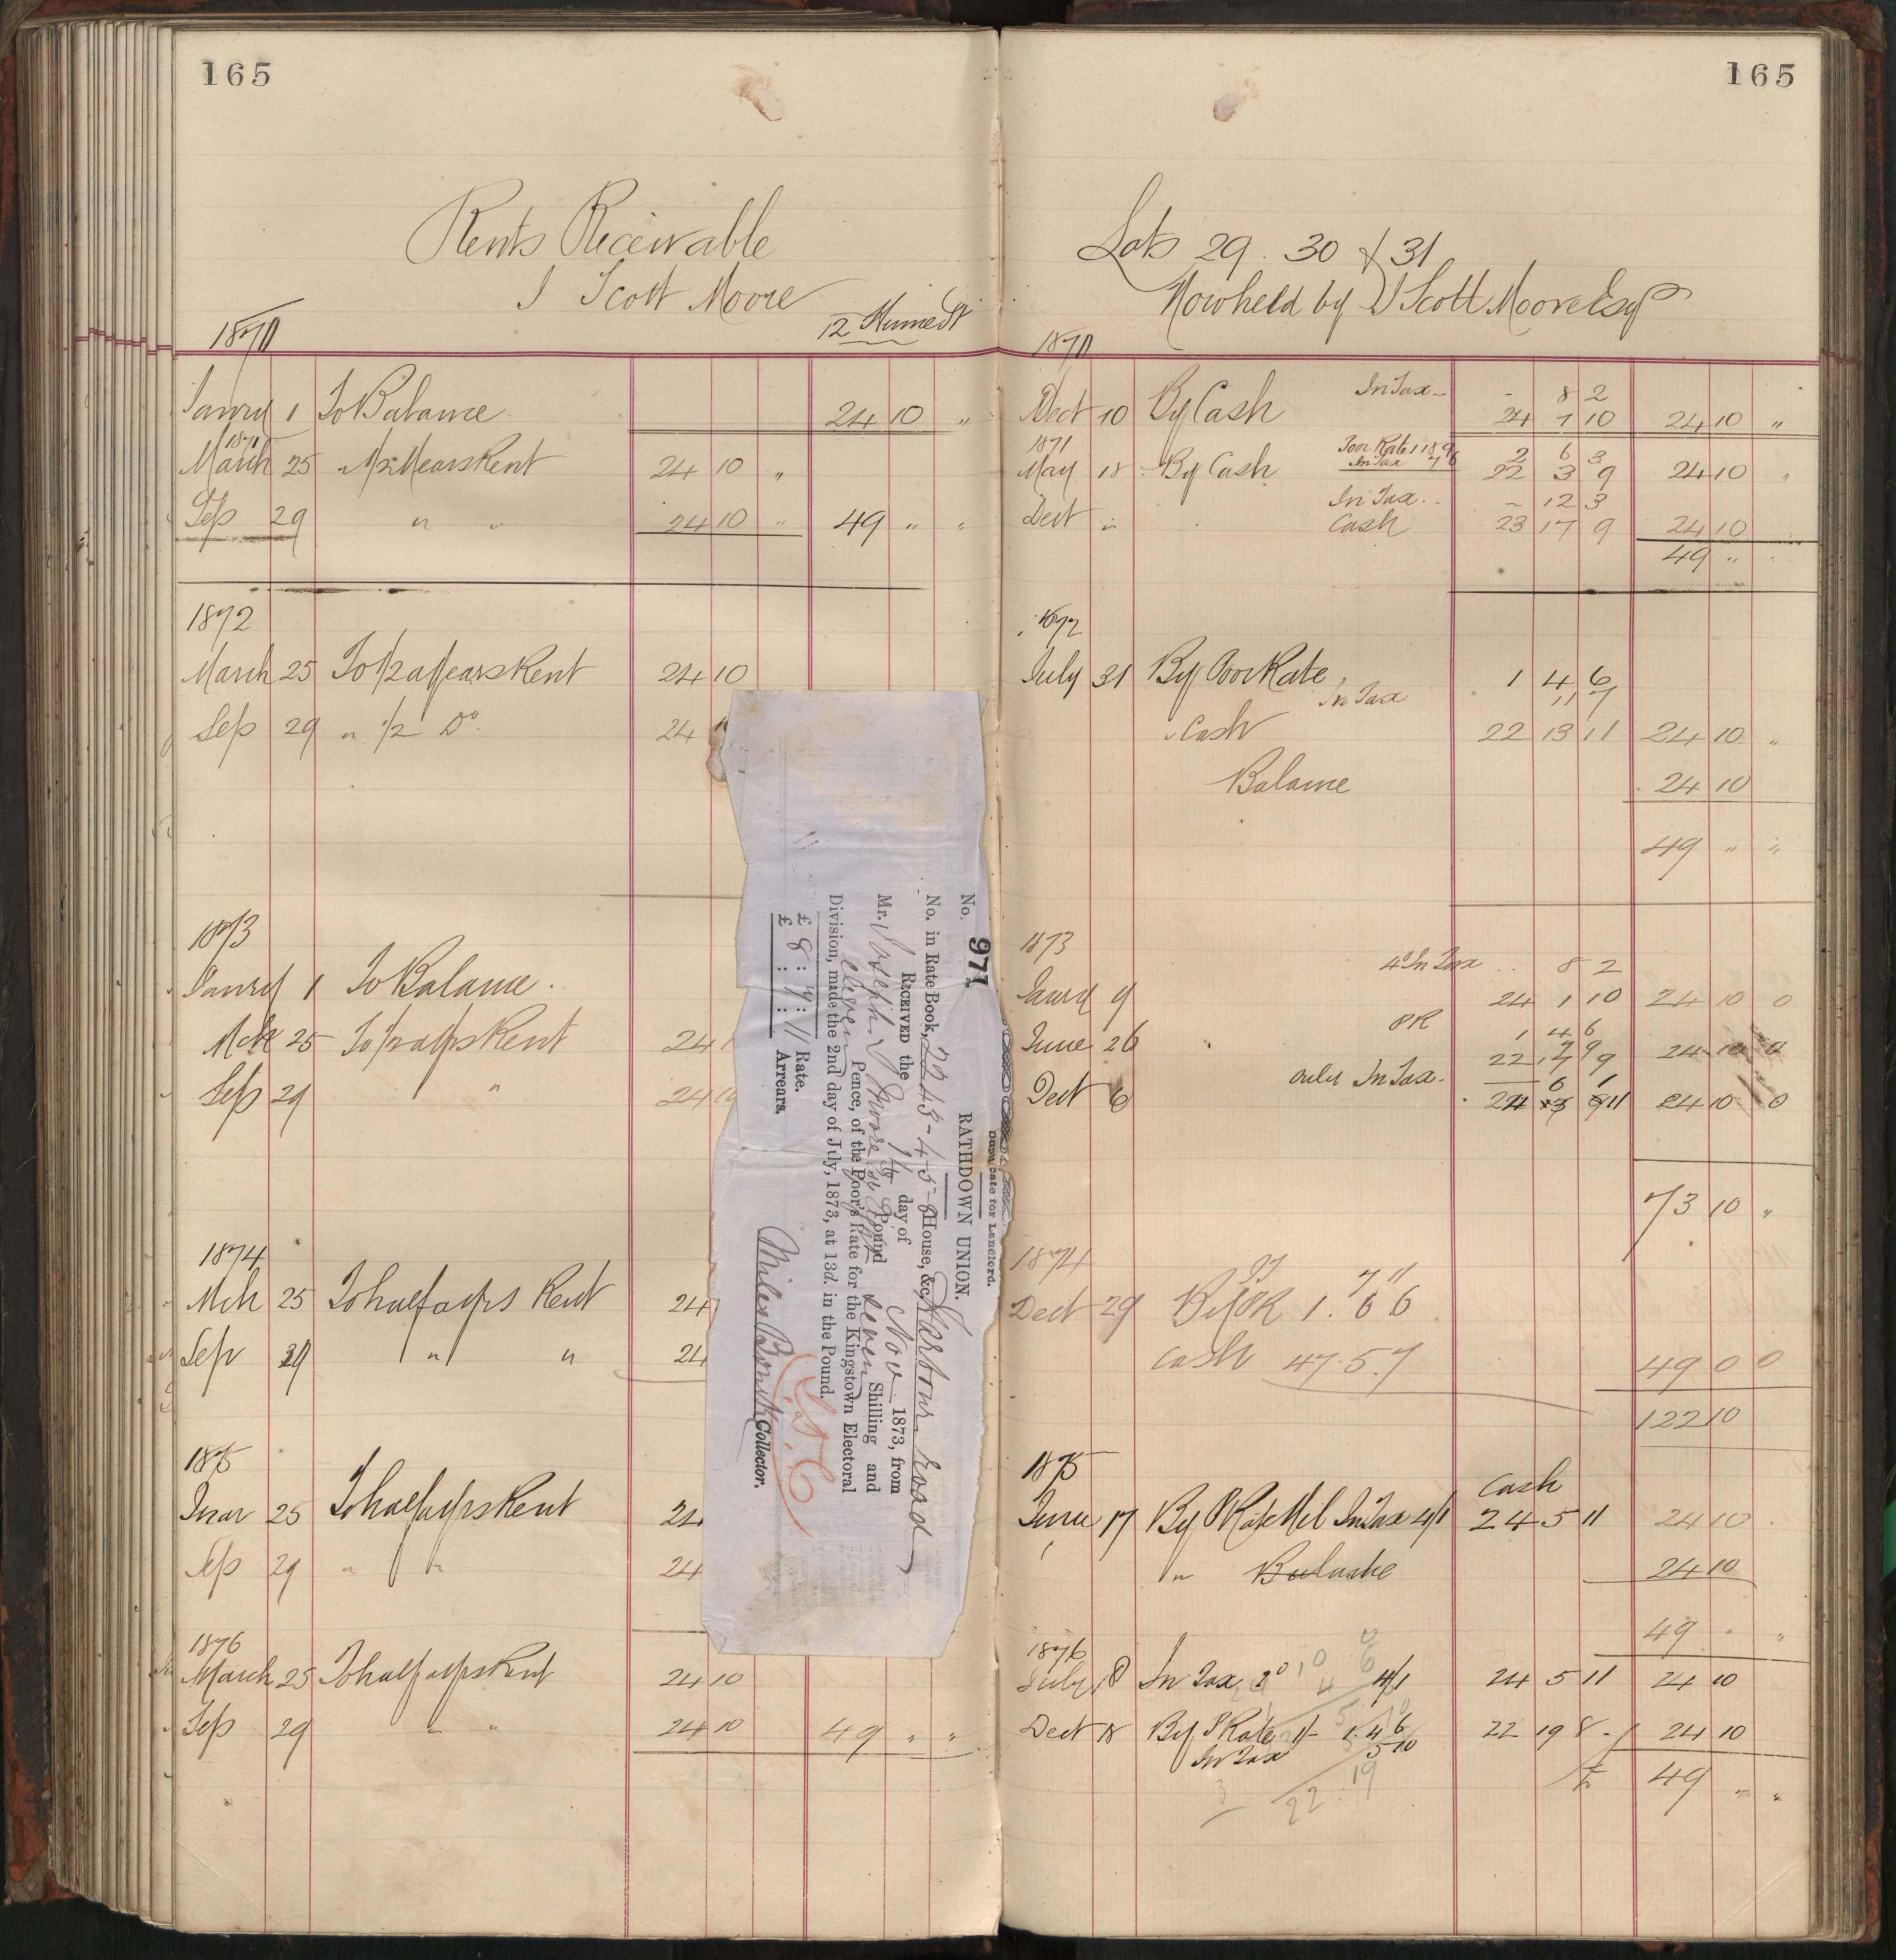 165
Rents Receivable
J Scott Moore
12 Hume St
1870
Janry 1 To Balance 24 10 "
1871
March 25 1/2 Years Rent 24 10 "
Sep 29 " " 24 10 " 49 " "
1872
March 25 To 1/2 a Years Rent 24 10
Sep 29 " 1/2 Do 24
1873
Janry 1 To Balance
Mch 25 To 1/2 a yrs Rent 24
Sep 29 " 24
1874
Mch 25 To half a yrs Rent 24
Sep 29 " " 24
1875
Mar 25 To half a yrs Rent 24
Sep 29 " " 24
1876
March 25 To half a yrs Rent 24 10
Sep 29 " " 24 10 49 " "
Duplicate for Landlord.
RATHDOWN UNION.
No. 971
No. in Rate Book, 2243-4-5-6 House, &c., Harbour Road
RECEIVED the 14 day of Nov 1873, from
Mr. Joseph S Moore Eight Pound Seven Shilling and
eleven Pence, of the Poor's Rate for the Kingstown Electoral
Division, made the 2nd day of July, 1873, at 13d. in the Pound.
£ 8 : 7 : 11 Rate.
£ : : Arrears.
Collector.
165
Lots 29. 30 & 31
Now held by J Scott Moore Esqr
1870
In Tax - - 8 2
Dect 10 By Cash 24 1 10 24 10 "
1871
Poor Rate 1 18 9 2 6 3
May 18 By Cash In Tax 7 6 22 3 9 24 10 "
In Tax - 12 3
Dect " Cash 23 17 9 24 10
49 " "
1872
July 31 By Poor Rate 1 4 6
In Tax 11 7
" Cash 22 13 11 24 10 "
Balance 24 10
49 " "
1873
4d In Tax 8 2
Janry 9 24 1 10 24 10 0
PR 1 4 6
June 26 " 22 24 10 0
In Tax 6 1
Dect 6 24 3 11 24 10 0
73 10 "
1874
Dect 29 By PR 1. 6 6
Cash 47.5.7 49 0 0
122 10
1875
Cash
June 17 By In Tax 4/1 24 5 11 24 10
" Balance 24 10
49 " "
1876
July 18 In Tax 2d 4/1 24 5 11 24 10
Dect 18 By P Rate 1/- 1 4 6 22 19 8 24 10
In Tax 5 10
22.19
£ 49 " "